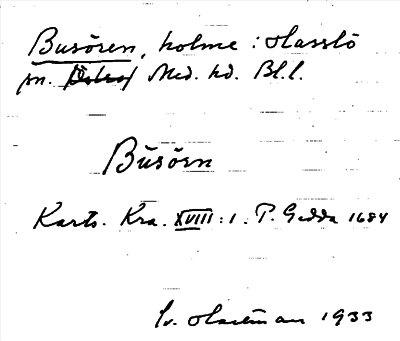 Busören, holme i Hasslö
sn. Med. hd. Bl. l.
Busörn
Karts. Kra. XVIII: 1. P. Gedda 1684
1933